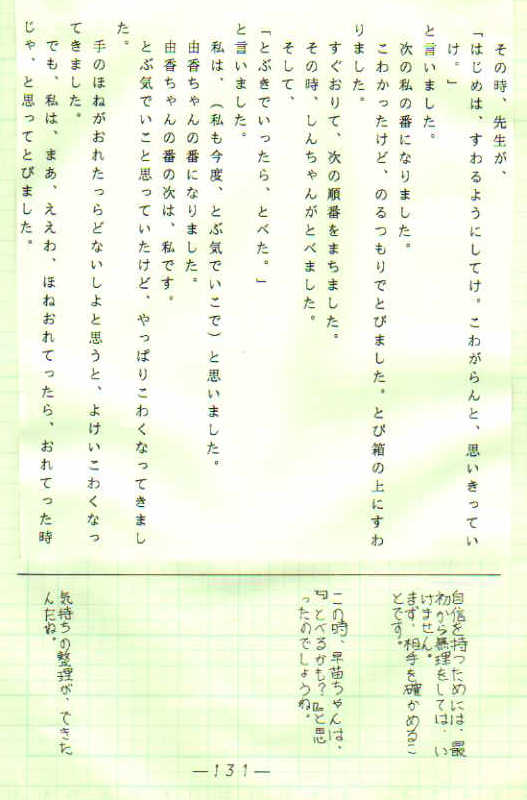 その時、先生が、
「はじめは、すわるようにしてけ。こわがらんと、思いきってい
け。」
と言いました。
次の私の番になりました。
こわかったけど、のるつもりでとびました。とび箱の上にすわ
りました。
すぐおりて、次の順番をまちました。
その時、しんちゃんがとべました。
そして、
「とぶきでいったら、とべた。」
と言いました。
私は、（私も今度、とぶ気でいこで）と思いました。
由香ちゃんの番になりました。
由香ちゃんの番の次は、私です。
とぶ気でいこと思っていたけど、やっぱりこわくなってきまし
た。
手のほねがおれたっらどないしよと思うと、よけいこわくなっ
てきました。
でも、私は、まあ、ええわ、ほねおれてったら、おれてった時
じゃ、と思ってとびました。
自信を持つためには、最
初から無理をしては、い
けません。
まず、相手を確かめるこ
とです。
この時、早苗ちゃんは、
『とべるかも？』と思
ったのでしょうね。
気持ちの整理が、できた
んだね。
—131—